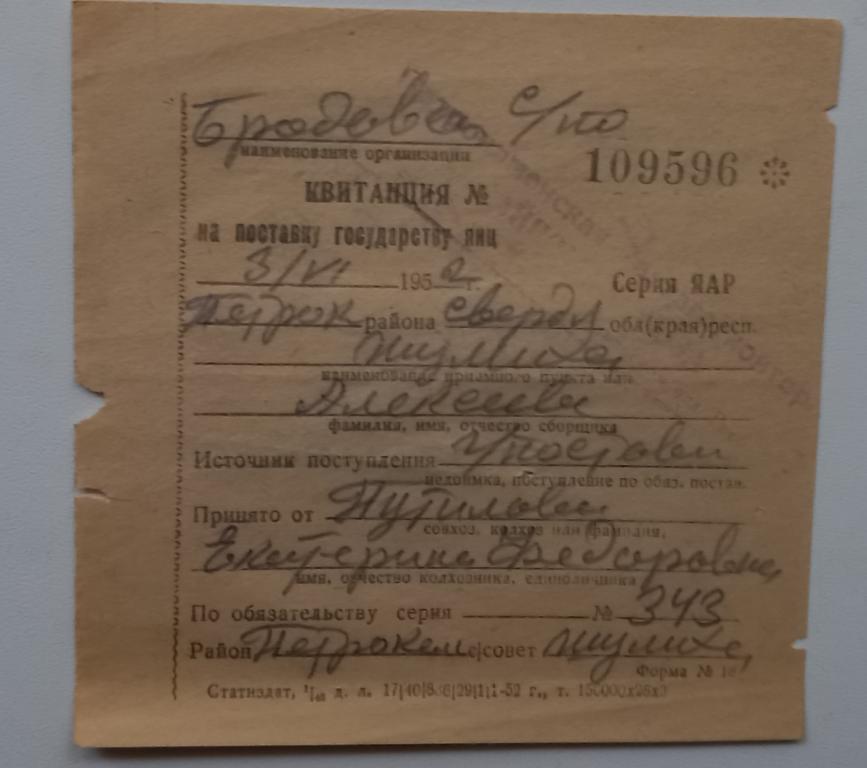 Бродовская с/по
наименование организации
109596
КВИТАНЦИЯ №
на поставку государству яиц
3/VI 1952 г.
Серия ЯАР
района Свердл обл(края)респ.
наименование приемного пункта или
Алексеева
фамилия, имя, отчество сборщика
Источник поступления г/постовки
недоимка, поступление по обяз. постав.
Принято от Путилова
совхоз, колхоз или фамилия,
Екатерина Федоровна
имя, отчество колхозника, единоличника
По обязательству серия № 343
Район Петрокам с/совет
Форма № 1
Статиздат, д. л. г., т.